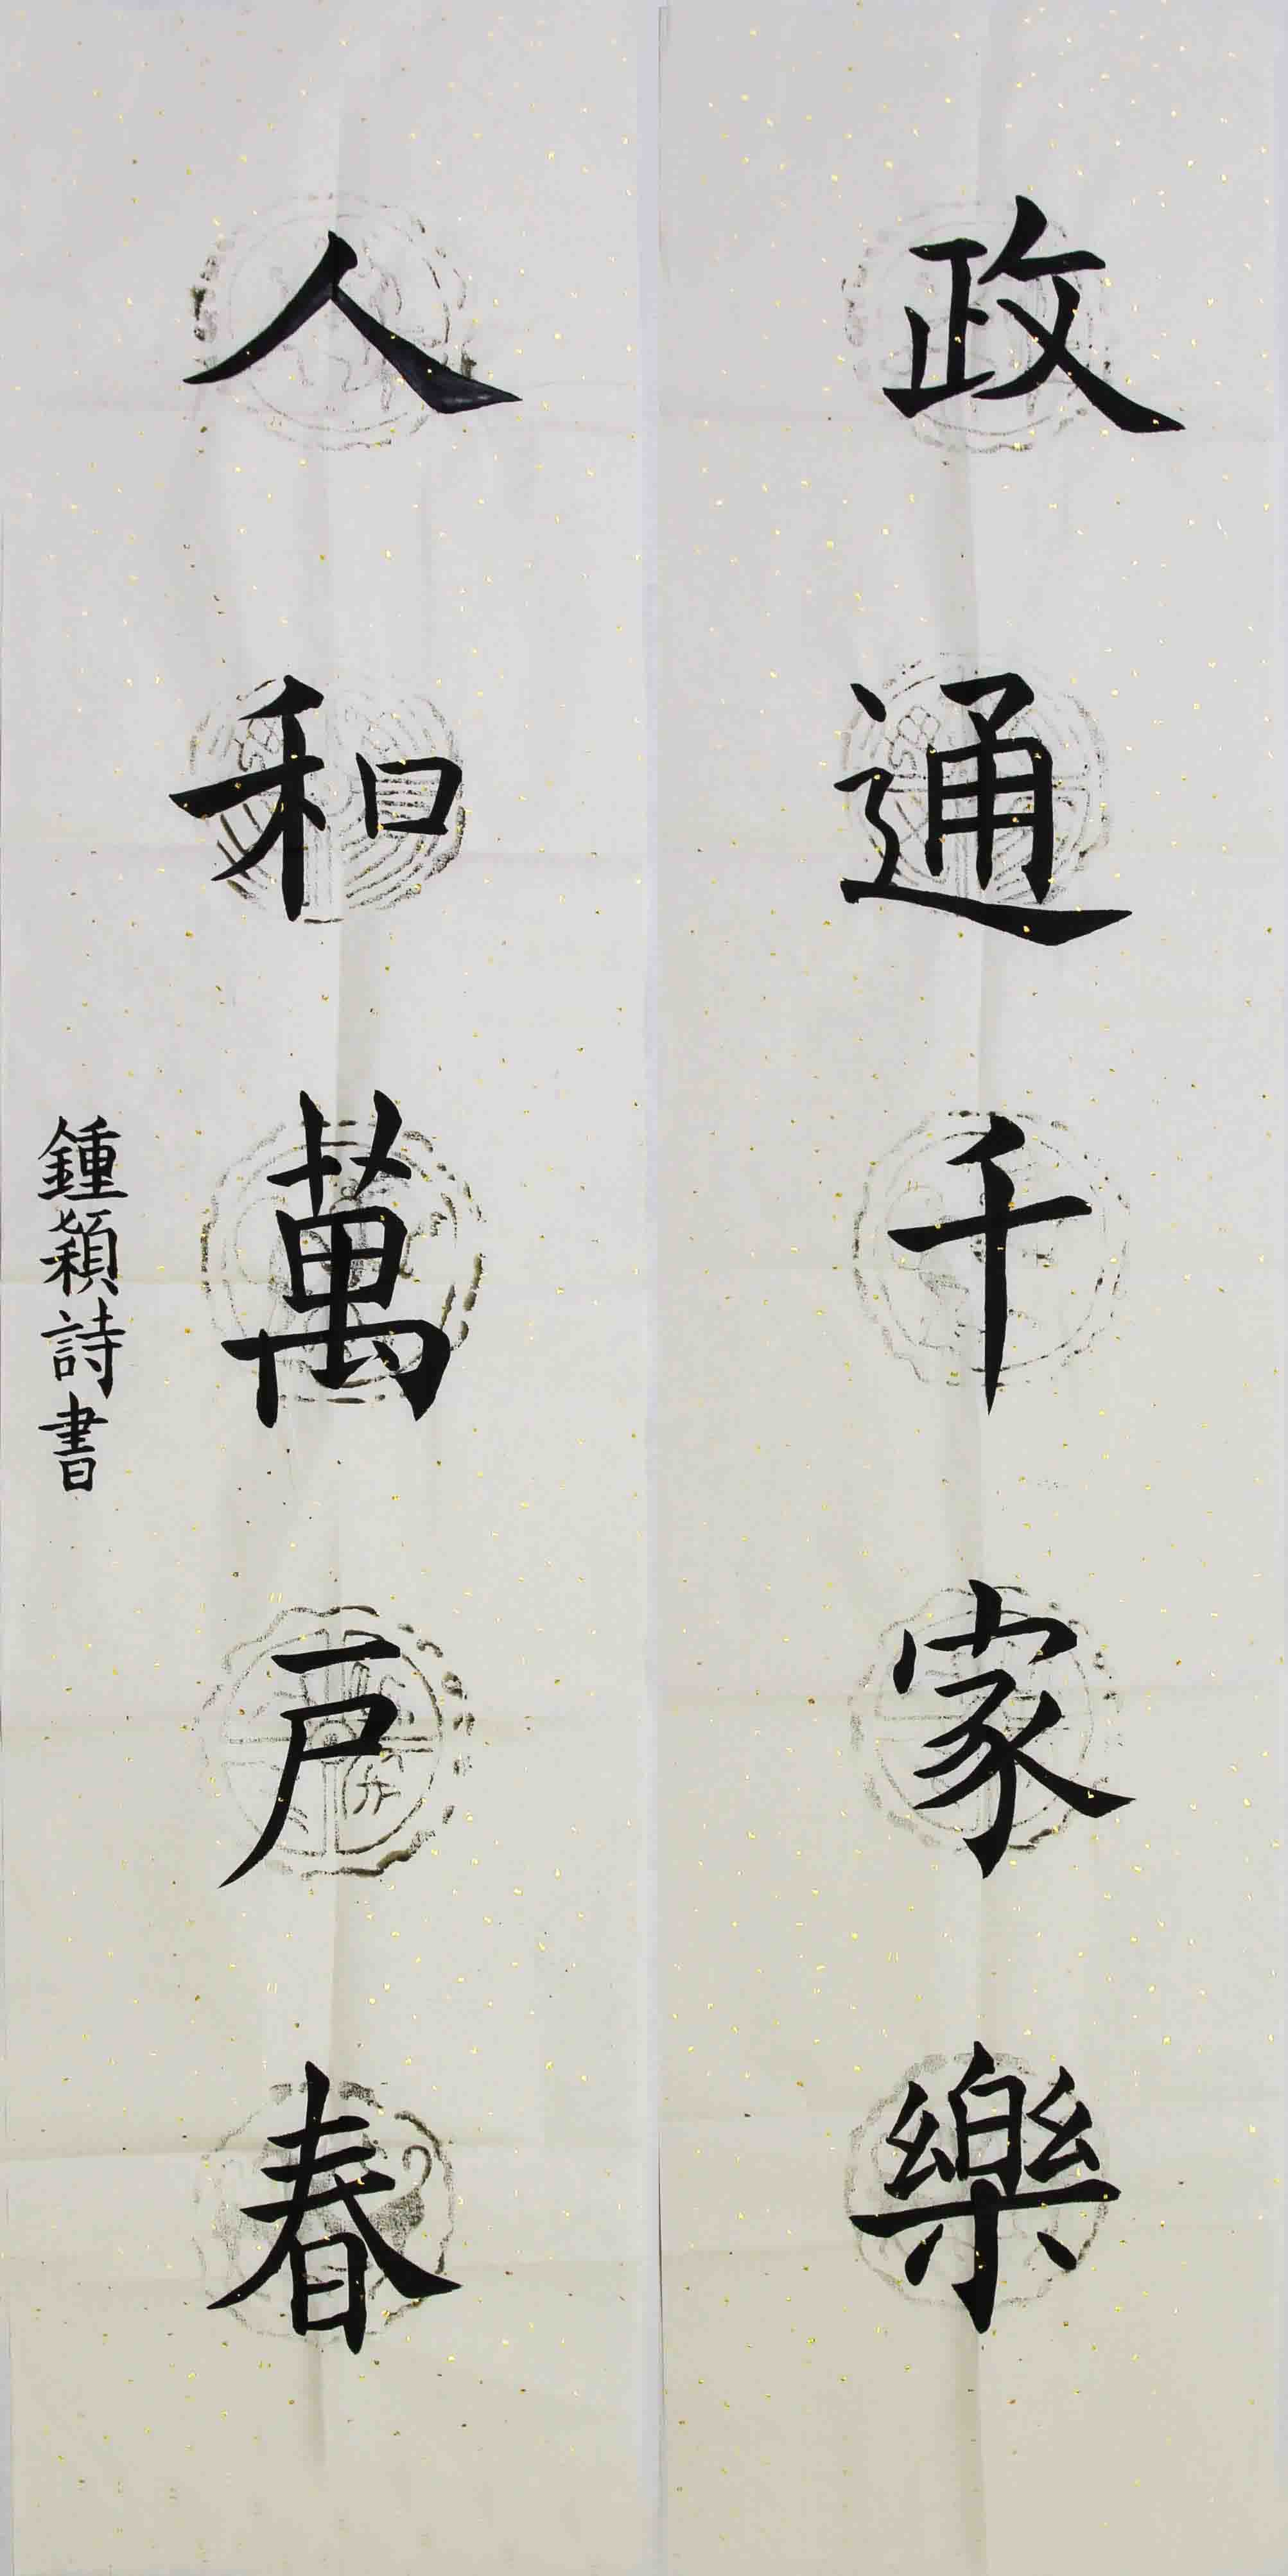 政通千家樂
人和萬户春
鍾穎詩書